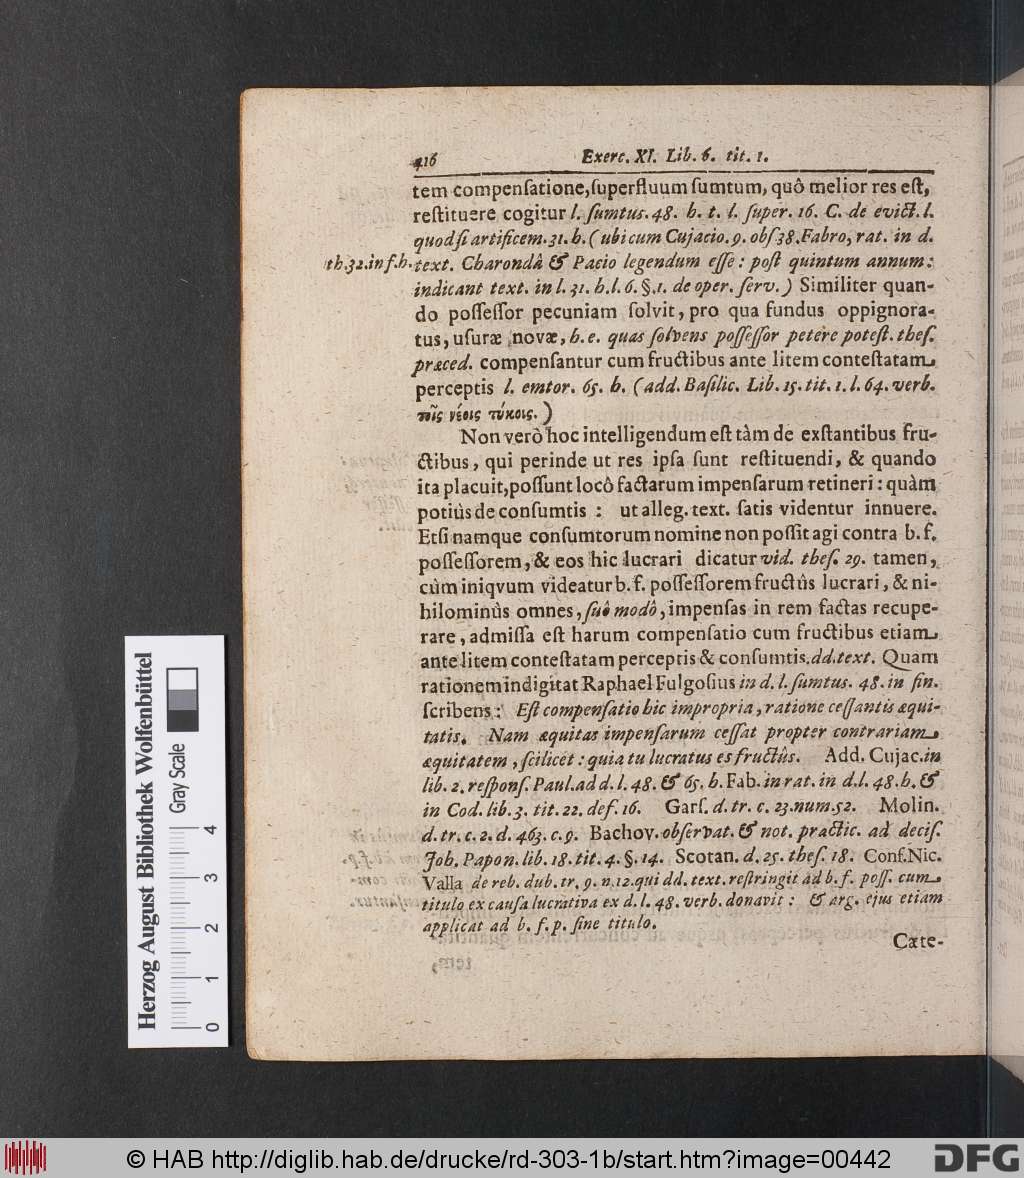 416 Exerc. XI. Lib. 6. tit. 1.
tem compenſatione, ſuperfluum ſumtum, quô melior res eſt,
reſtituere cogitur l. ſumtus. 48. h. t. l. ſuper. 16. C. de evict. l.
quodſi artificem. 31. h. (ubi cum Cujacio. 9. obſ 38. Fabro, rat. in d.
th. 32. in f. h.
text. Charondâ & Pacio legendum eſſe: poſt quintum annum:
indicant text. in l. 31. h. l. 6. §. 1. de oper. ſerv.) Similiter quan-
do poſſeſſor pecuniam ſolvit, pro qua fundus oppignora-
tus, uſuræ novæ, h. e. quas ſolvens poſſeſſor petere poteſt. theſ.
præced. compenſantur cum fructibus ante litem conteſtatam
perceptis l. emtor. 65. h. (add. Baſilic. Lib. 15. tit. 1. l. 64. verb.
τοῖς νέοις τύκοις.)
Non verò hoc intelligendum eſt tàm de exſtantibus fru-
ctibus, qui perinde ut res ipſa ſunt reſtituendi, & quando
ita placuit, poſſunt locô factarum impenſarum retineri: quàm
potiùs de conſumtis: ut alleg. text. ſatis videntur innuere.
Etſi namque conſumtorum nomine non poſſit agi contra b. f.
poſſeſſorem, & eos hic lucrari dicatur vid. theſ. 29. tamen,
cùm iniqvum videatur b. f. poſſeſſorem fructûs lucrari, & ni-
hilominùs omnes, ſuô modô, impenſas in rem factas recupe-
rare, admiſſa eſt harum compenſatio cum fructibus etiam
ante litem conteſtatam perceptis & conſumtis. dd. text. Quam
rationem indigitat Raphael Fulgoſius in d. l. ſumtus. 48. in fin.
ſcribens: Eſt compenſatio hic impropria, ratione ceſſantis æqui-
tatis. Nam æquitas impenſarum ceſſat propter contrariam
æquitatem, ſcilicet: quia tu lucratus es fructûs. Add. Cujac. in
lib. 2. reſponſ. Paul. ad d. l. 48. & 65. h. Fab. in rat. in d. l. 48. h. &
in Cod. lib. 3. tit. 22. def. 16. Garſ. d. tr. c. 23. num. 52. Molin.
d. tr. c. 2. d. 463. c. 9. Bachov. obſervat. & not. practic. ad deciſ.
Joh. Papon. lib. 18. tit. 4. §. 14. Scotan. d. 25. theſ. 18. Conf. Nic.
Valla de reb. dub. tr. 9. n. 12. qui dd. text. reſtringit ad b. f. poſſ. cum
titulo ex cauſa lucrativa ex d. l. 48. verb. donavit: & arg. ejus etiam
applicat ad b. f. p. ſine titulo.
Cæte-
Herzog August Bibliothek Wolfenbüttel
Gray Scale
0 1 2 3 4
© HAB http://diglib.hab.de/drucke/rd-303-1b/start.htm?image=00442
DFG